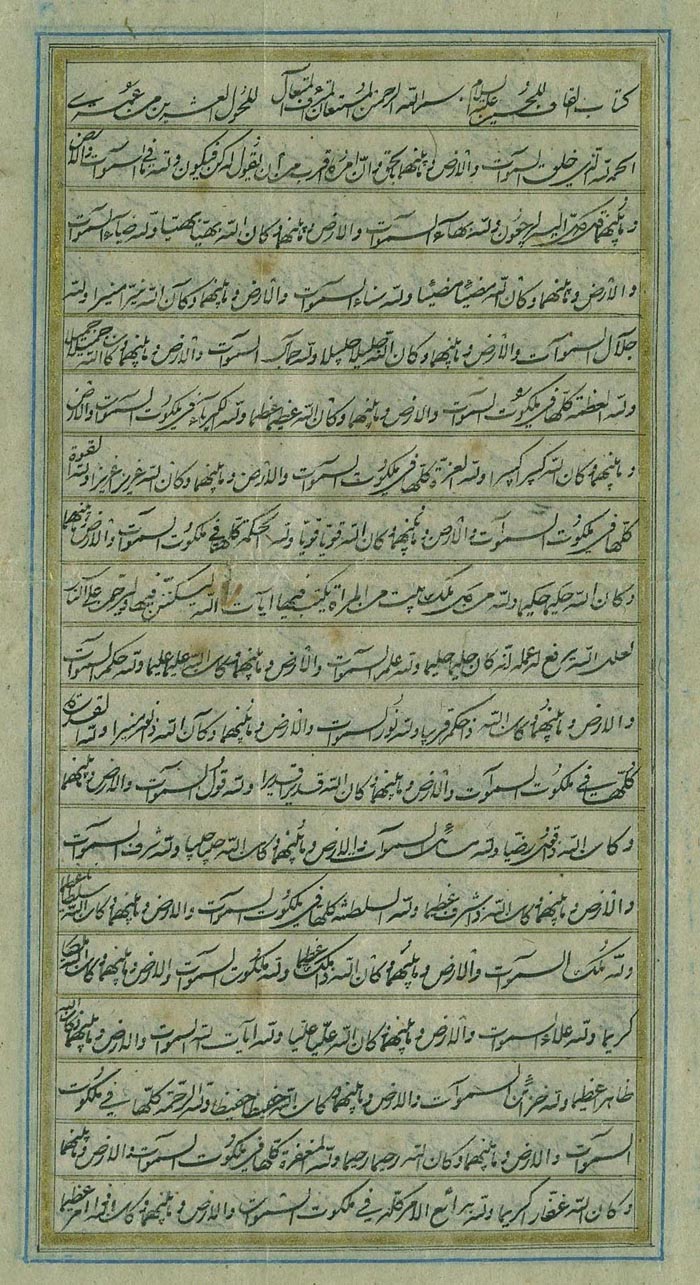 كتاب الفاء للحسين عليه السلام بسم الله الرحمن المستعان المتعال
الحمد لله الذي خلق السموات والارض وما بينهما بالحق وان امره اقرب من ان يقول لكن فيكون ولله ما في السموات والارض
وما بينهما وكل اليه ليرجعون ولله بهاء السموات والارض وما بينهما وكان الله بهيا بهيا ولله ضياء السموات
والارض وما بينهما وكان الله مضيئا مضيئا ولله سناء السموات والارض وما بينهما وكان الله منيرا منيرا ولله
جلال السموات والارض وما بينهما وكان الله جليلا جليلا ولله جمال السموات والارض وما بينهما وكان الله جميلا جميلا
ولله العظمة كلها في ملكوت السموات والارض وما بينهما وكان الله عظيما عظيما ولله الكبرياء في ملكوت السموات والارض
وما بينهما وكان الله كبيرا كبيرا ولله العزة كلها في ملكوت السموات والارض وما بينهما وكان الله عزيزا عزيزا ولله القوة
كلها في ملكوت السموات والارض وما بينهما وكان الله قويا قويا ولله الحكمة كلها في ملكوت السموات والارض وما بينهما
وكان الله حكيما حكيما ولله من كل ملك بيت من المرآة يكتب فيها ايات الله
لعل الله يرفع انه كان حليما حليما ولله علم السموات والارض وما بينهما وكان الله عليما عليما ولله حكم السموات
والارض وما بينهما وكان الله ذا حكم قريبا ولله نور السموات والارض وما بينهما وكان الله ذا نور منيرا ولله القدرة
كلها في ملكوت السموات والارض وما بينهما وكان الله قديرا قديرا ولله قول السموات والارض وما بينهما
وكان الله ذا قول رضيا ولله مسائل السموات والارض وما بينهما وكان الله حبيبا ولله شرف السموات
والارض وما بينهما وكان الله ذا شرف عظيما ولله السلطنة كلها في ملكوت السموات والارض وما بينهما وكان الله سلطانا عظيما
ولله ملك السموات والارض وما بينهما وكان الله ذا ملك عظيما ولله ملكوت السموات والارض وما بينهما وكان الله
كريما ولله علاء السموات والارض وما بينهما وكان الله عليا عليا ولله ايات السموات والارض وما بينهما وكان الله
ظاهرا عظيما ولله خزائن السموات والارض وما بينهما وكان الله حفيظا حفيظا ولله الرحمة كلها في ملكوت
السموات والارض وما بينهما وكان الله رحيما رحيما ولله المغفرة كلها في ملكوت السموات والارض وما بينهما
وكان الله غفارا كريما ولله بدائع الامر كله في ملكوت السموات والارض وما بينهما وكان الله ذا امر عظيما